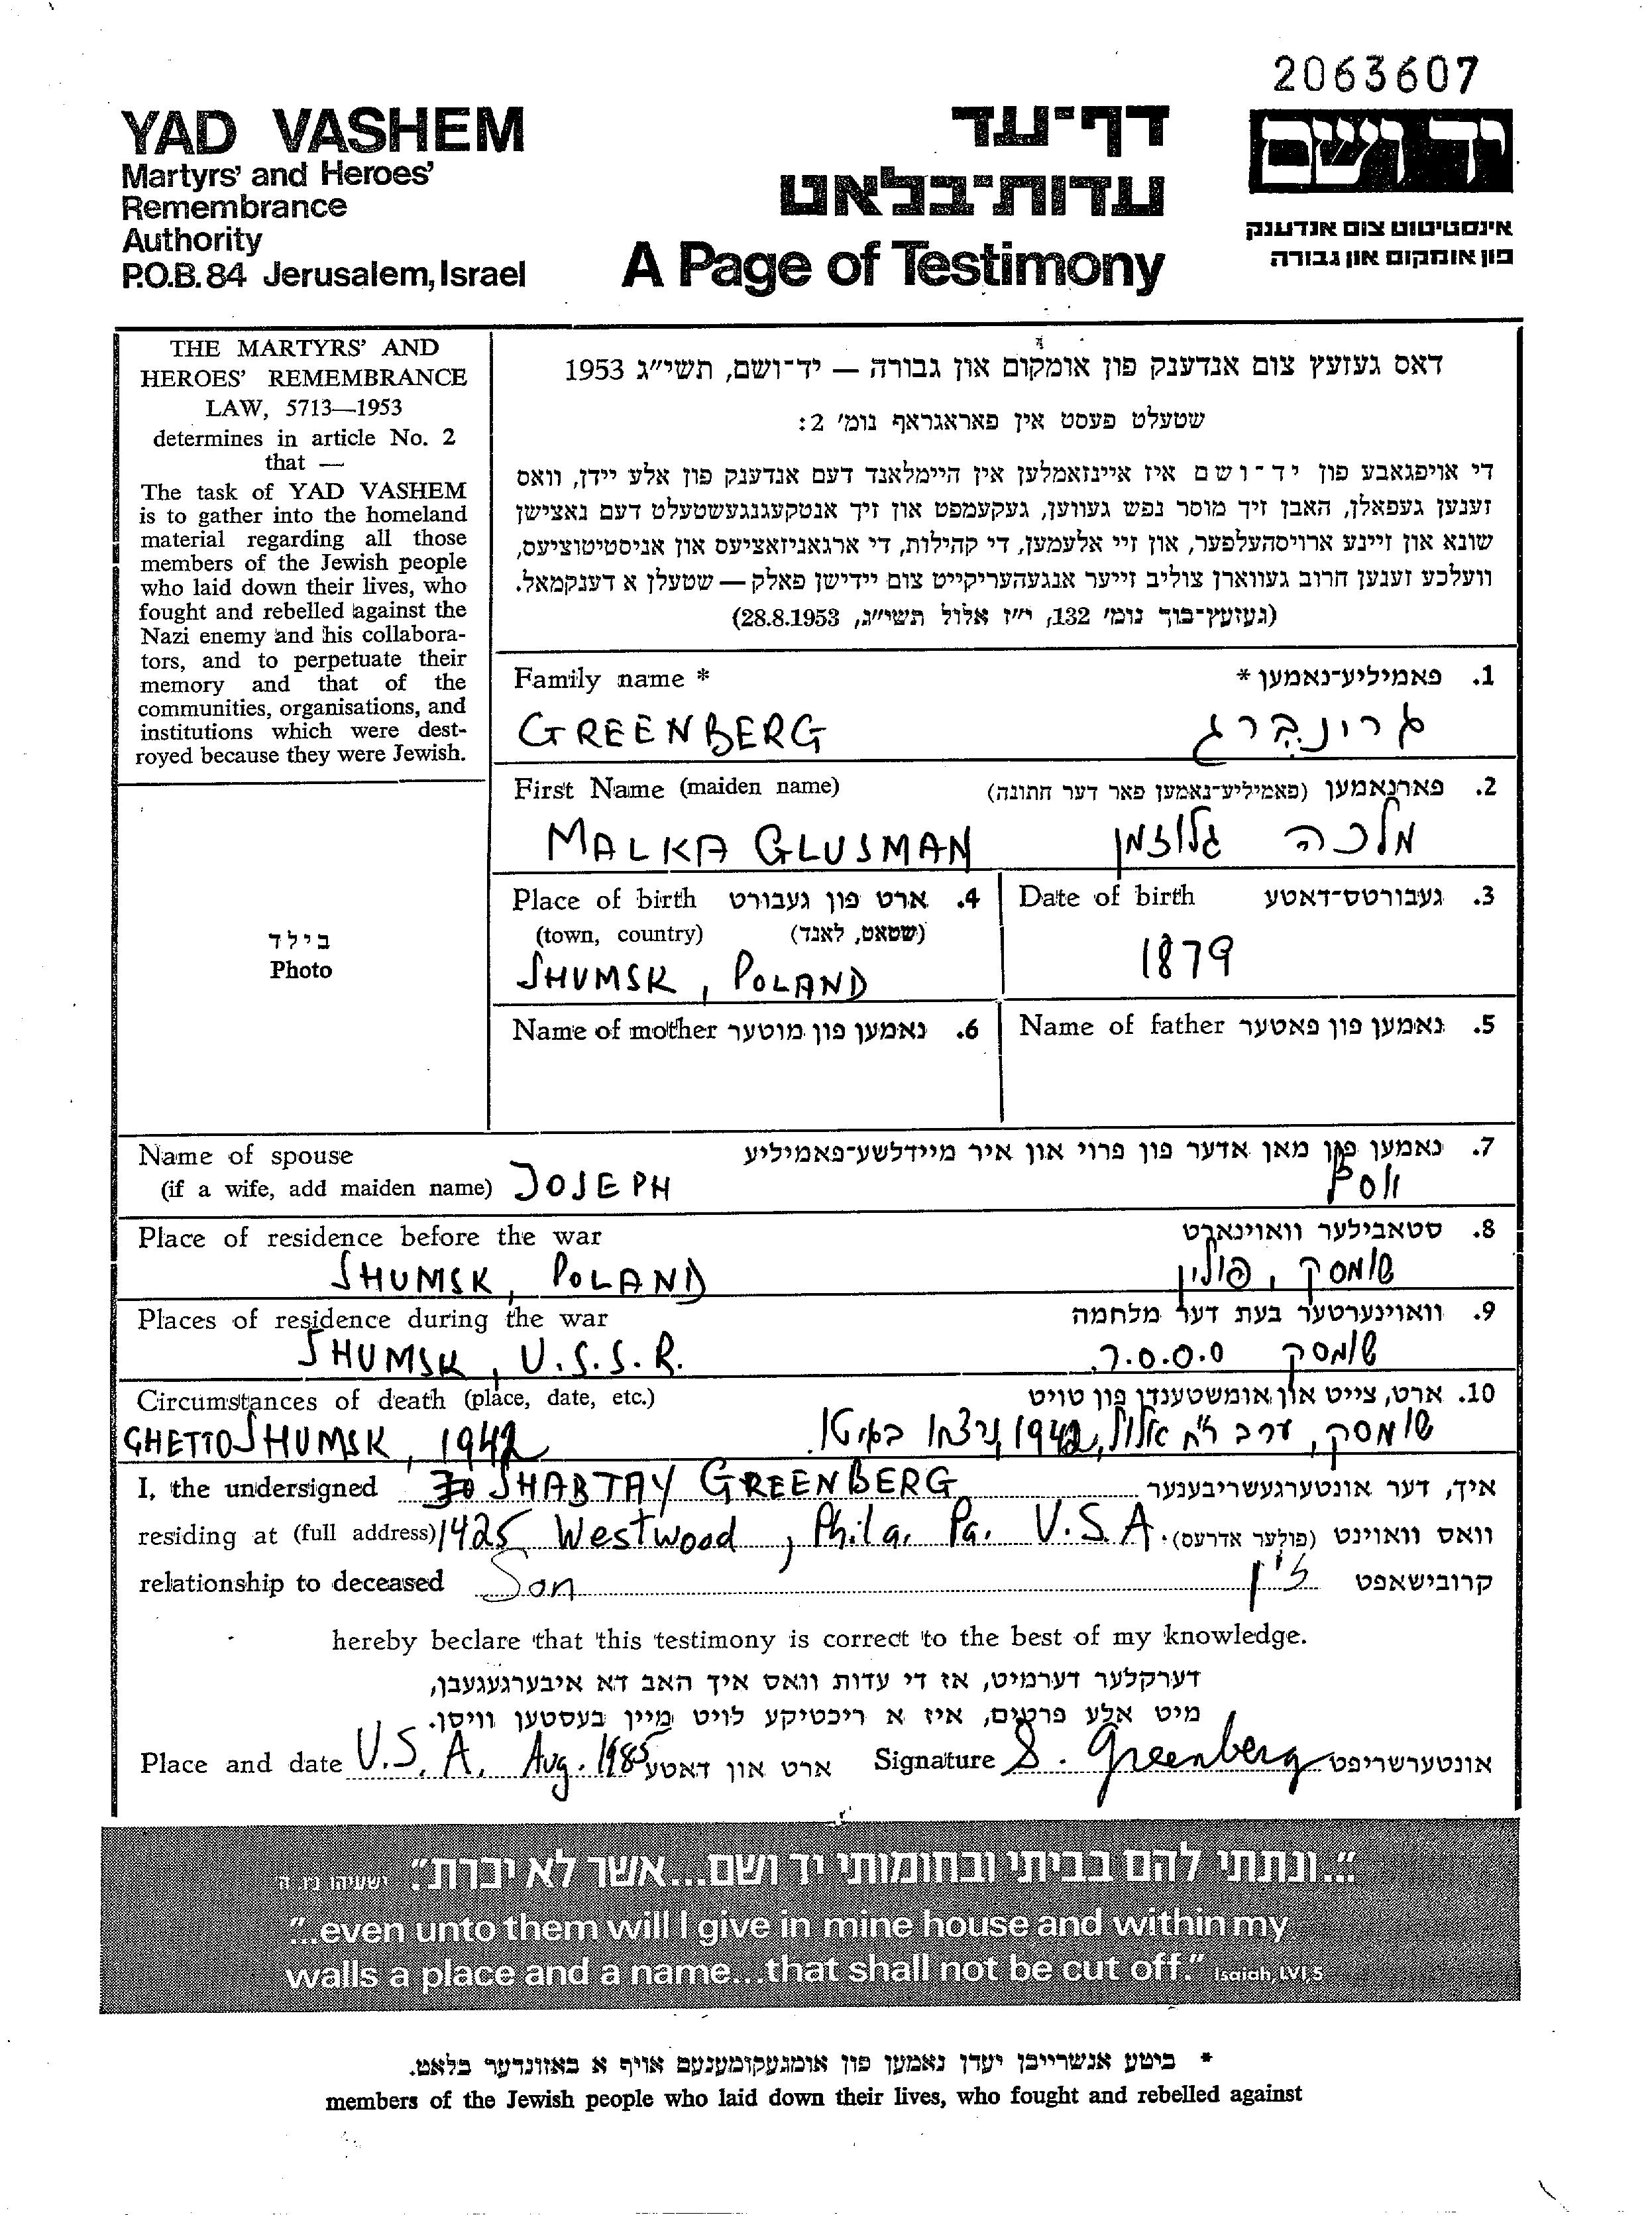 2063607
YAD VASHEM
Martyrs' and Heroes'
Remembrance
Authority
P.O.B. 84 Jerusalem, Israel
דף־עד
עדות־בלאט
A Page of Testimony
יד ושם
אינסטיטוט צום אנדענק
פון אומקום און גבורה
THE MARTYRS' AND
HEROES' REMEMBRANCE
LAW, 5713—1953
determines in article No. 2
that —
The task of YAD VASHEM
is to gather into the homeland
material regarding all those
members of the Jewish people
who laid down their lives, who
fought and rebelled against the
Nazi enemy and his collabora-
tors, and to perpetuate their
memory and that of the
communities, organisations, and
institutions which were dest-
royed because they were Jewish.
דאס געזעץ צום אנדענק פון אומקום און גבורה — יד־ושם, תשי״ג 1953
שטעלט פעסט אין פאראגראף נומ׳ 2:
די אויפגאבע פון יד־ושם איז איינזאמלען אין היימלאנד דעם אנדענק פון אלע יידן, וואס
זענען געפאלן, האבן זיך מוסר נפש געווען, געקעמפט און זיך אנטקעגנגעשטעלט דעם נאצישן
שונא און זיינע ארויסהעלפער, און זיי אלעמען, די קהילות, די ארגאניזאציעס און אניסטיטוציעס,
וועלכע זענען חרוב געווארן צוליב זייער אנגעהעריקייט צום יידישן פאלק — שטעלן א דענקמאל.
(געזעץ־בוך נומ׳ 132, י״ז אלול תשי״ג, 28.8.1953)
Family name * פאמיליע־נאמען * .1
GREENBERG גרינברג
First Name (maiden name) פארנאמען (פאמיליע־נאמען פאר דער חתונה) .2
MALKA GLUSMAN מלכה גלוזמן
Place of birth ארט פון געבורט .4
(town, country) (שטאט, לאנד)
SHUMSK, POLAND
Date of birth געבורטס־דאטע .3
1879
בילד
Photo
Name of mother נאמען פון מוטער .6
Name of father נאמען פון פאטער .5
Name of spouse נאמען פון מאן אדער פון פרוי און איר מיידלשע־פאמיליע .7
(if a wife, add maiden name) JOSEPH יוסף
Place of residence before the war סטאבילער וואוינארט .8
SHUMSK, POLAND שומסק, פולין
Places of residence during the war וואוינערטער בעת דער מלחמה .9
SHUMSK, U.S.S.R. שומסק ס.ס.ס.ר.
Circumstances of death (place, date, etc.) ארט, צייט און אומשטענדן פון טויט .10
GHETTO SHUMSK, 1942 שומסק, ערב ר״ח אלול, 1942, ניצחו בגיטו.
I, the undersigned SHABTAY GREENBERG איך, דער אונטערגעשריבענער
residing at (full address) 1425 Westwood, Phila, Pa. U.S.A. וואס וואוינט (פולער אדרעס)
relationship to deceased Son קרובישאפט
hereby beclare that this testimony is correct to the best of my knowledge.
דערקלער דערמיט, אז די עדות וואס איך האב דא איבערגעגעבן,
מיט אלע פרטים, איז א ריכטיקע לויט מיין בעסטען וויסן.
Place and date U.S.A. Aug. 1985 ארט און דאטע Signature S. Greenberg אונטערשריפט
"...ונתתי להם בביתי ובחומותי יד ושם...אשר לא יכרת." ישעיהו נ״ו, ה׳
"...even unto them will I give in mine house and within my
walls a place and a name...that shall not be cut off." Isaiah, LVI, 5
* ביטע אנשרייבן יעדן נאמען פון אומגעקומענעם אויף א באזונדער בלאט.
members of the Jewish people who laid down their lives, who fought and rebelled against